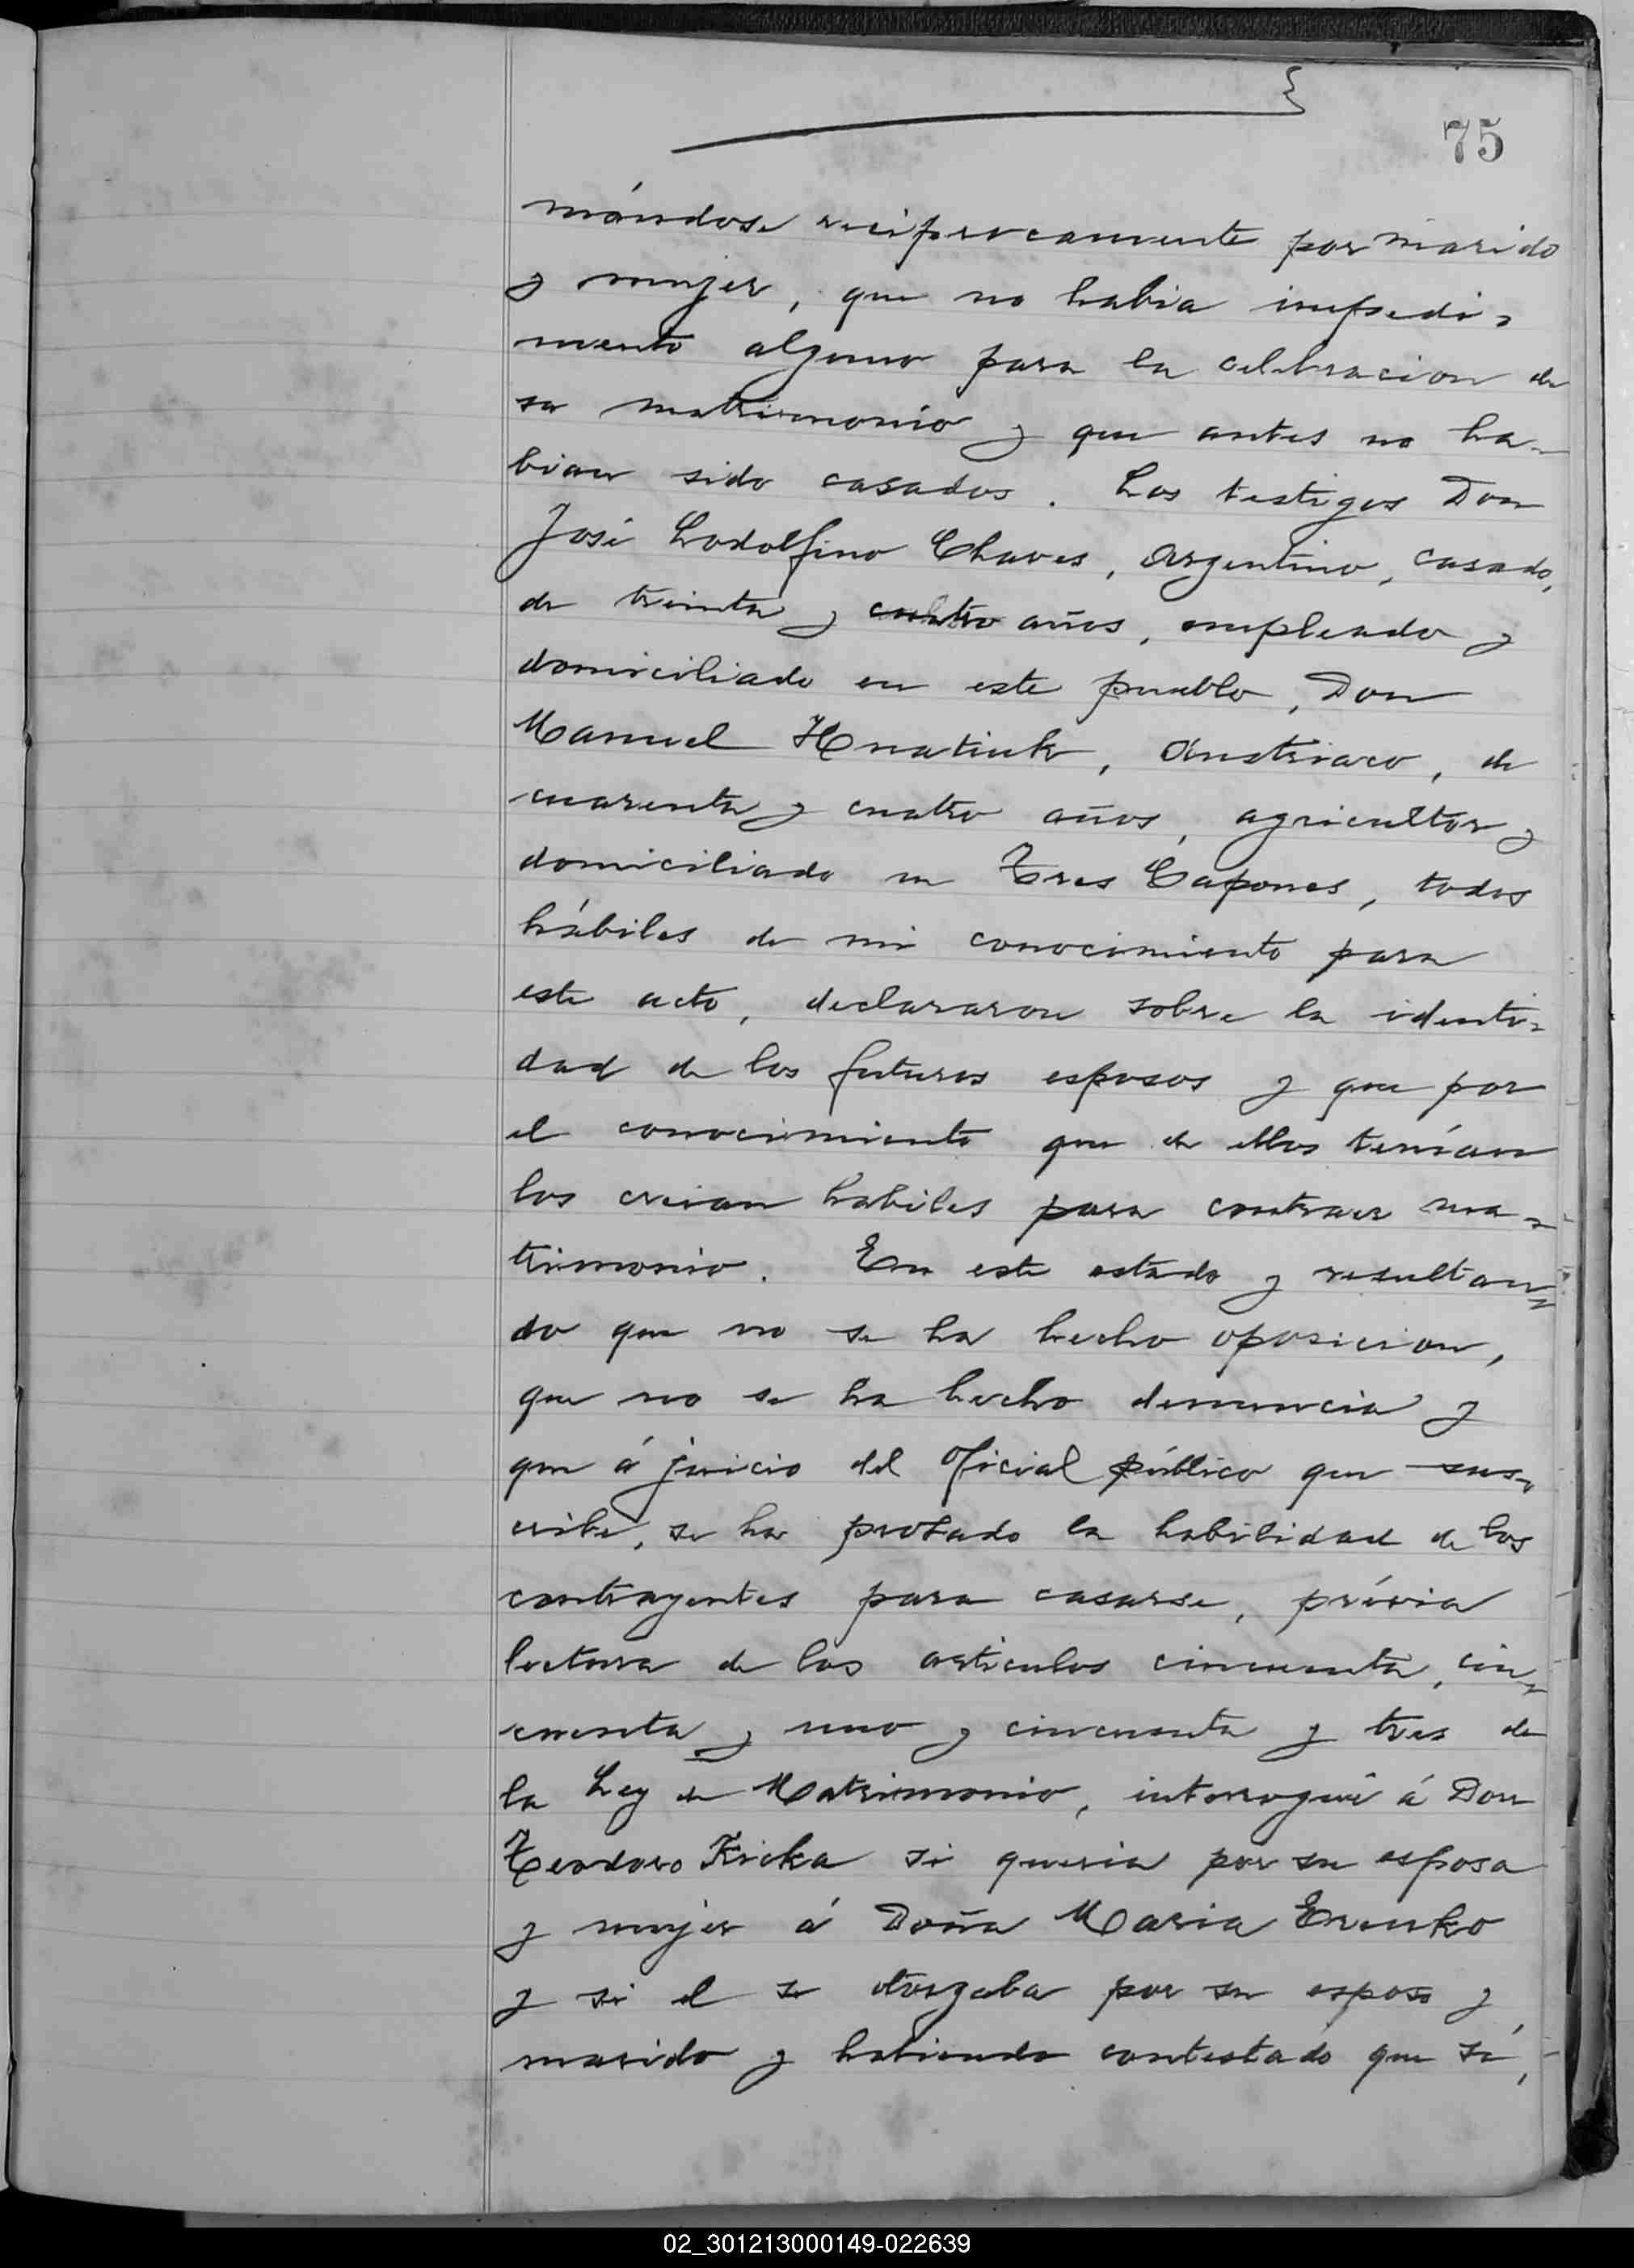 75
mándose reciprocamente por marido
y mujer, que no habia impedi-
mento alguno para la celebracion de
su matrimonio y que antes no ha-
bian sido casados. Los testigos Don
José Lodolfino Chaves, Argentino, casado,
de treinta y cuatro años, empleado y
domiciliado en este pueblo, Don
Manuel Hnatiuk, Austriaco, de
cuarenta y cuatro años, agricultor y
domiciliado en Tres Capones, todos
hábiles de mi conocimiento para
este acto, declararon sobre la identi-
dad de los futuros esposos y que por
el conocimiento que de ellos tenían
los creian habiles para contraer ma-
trimonio. En este estado y resultan-
do que no se ha hecho oposicion,
que no se ha hecho denuncia y
que á juicio del Oficial público que sus-
cribe, se ha probado la habilidad de los
contrayentes para casarse, prévia
lectura de los articulos cincuenta, cin-
cuenta y uno y cincuenta y tres de
la Ley de Matrimonio, interrogué á Don
Teodoro Kricka si queria por su esposa
y mujer á Doña Maria Erenko
y si el se otorgaba por su esposo y
marido y habiendo contestado que sí,
02_301213000149-022639